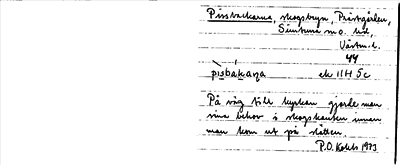 Pissbackarna, skogsbryn, Prästgården,
Simtuna sn o. hd,
Västm. l.
44
pisbákaṇa ek 11H 5c
På väg till kyrkan gjorde man
sina behov i skogskanten innan
man kom ut på slätten.
P.O. 1973